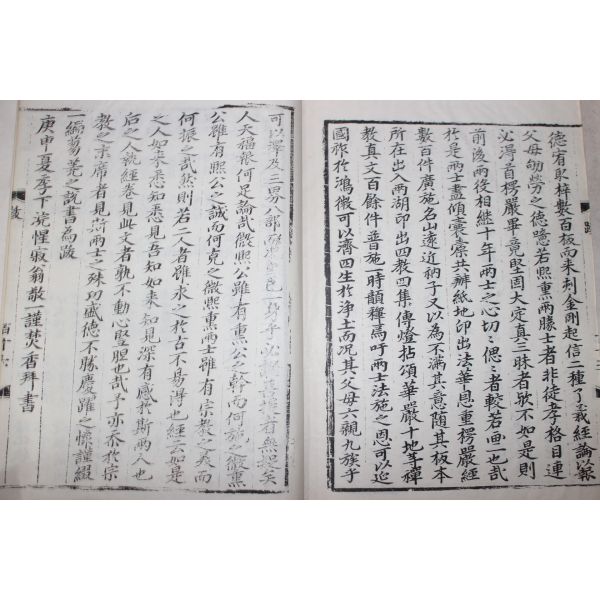 德宥耿梓數百板而来刺金剛起信二種了義經論以報
父母劬勞之德噫若熙熏兩勝士者非徒孝格目連
必得首楞嚴畢竟堅固大定真三昧者歟不如是則
前後兩役相継十年兩士之心切〻偲〻者較若画一也哉
於是兩士盡傾囊槖共辦紙地印出法華恩重楞嚴經
數百件廣施名山遠近衲子又以為不滿其意随其板本
所在出入兩湖印出四教四集傳燈拈頌華嚴十地等禪
教真文百餘件普施一時韻釋焉吁兩士法施之恩可以延
國祚於鴻徽可以濟四生於浄土而况其父母六親九族乎
可以 及三界
人天福報何足論哉微熙公雖有熏公之幹而何施微熏
公雖有熙公之誠而何克之微熙熏兩士雖有宗教之美而
何振之哉然則若二人者雖求之於古不易得也經云如是
之人如来悉知悉見吾知如来知見深有感於斯兩人也
后之人説經卷見此文者孰不動心堅膽也哉予亦忝於宗
教之末席者見諸兩士之殊功盛德不勝慶躍之懷謹綴
一編蒭蕘之説書為跋
庚申夏季下浣惺寂翁敬一謹焚香拜書
跋